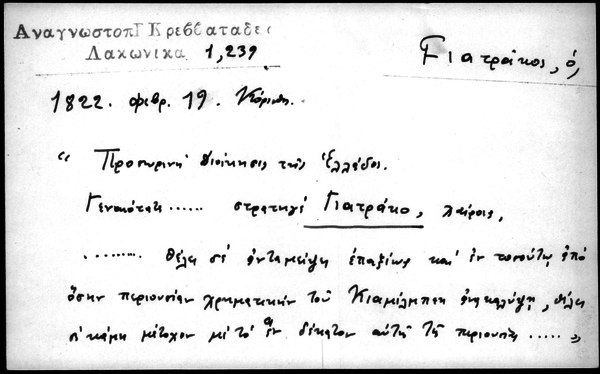 Αναγνωστοπ Γ Κρεββαταδες
Λακωνικα 1,239
Γιατράκος, ὁ,
1822. φεβρ. 19. Κόρινθ.
“ Προσωρινή Διοίκησις τῆς Ἑλλάδος.
Γενναιότατε ...... στρατηγέ Γιατράκο, χαίροις,
......... θέλει σέ ἀνταμείψη ἐπαξίως καί ἐν τοσούτῳ ἀπό
ὅσην περιουσίαν χρηματικήν τοῦ Κιαμίλμπεη ἀνακαλύψῃ, θέλει
σέ κάμη μέτοχον μέ τό ἕν δέκατον αὐτῆς τῆς περιουσίας ..... „